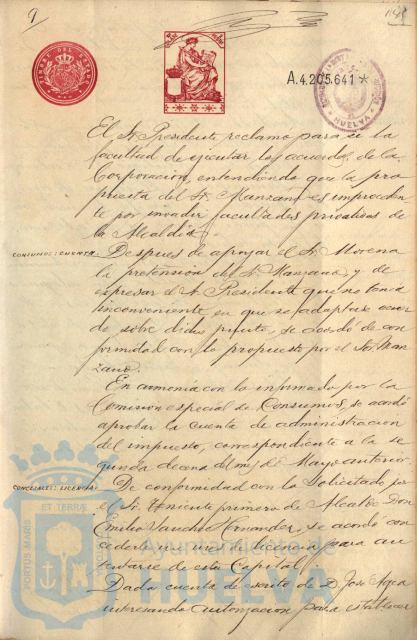 9
TIMBRE DEL ESTADO
A.4.205.641*
HUELVA
El Sr. Presidente, reclamo para si la
facultad de ejecutar los acuerdos de la
Corporacion, entendiendo que la pro
puesta del Sr. Manzano es improceden
te por invadir facultades privativas de
la Alcaldia.
CONSUMOS: CUENTA.
Despues de apoyar el Sr. Morena
la pretension del Sr. Manzano, y de
espresar el Sr. Presidente que no tenia
inconveniente en que se adaptase acuer
do sobre dicho punto, se acordó de con
formidad con lo propuesto por el Sr. Man
zano.
En armonia con lo informado por la
Comision especial de Consumos, se acordó
aprobar la cuenta de administracion
del impuesto, correspondiente a la se
gunda decena del mes de Mayo anterior.
CONCEJALES: LICENCIA:
De conformidad con lo solicitado por
el Sr. Teniente primero de Alcalde Don
Emilio Sanchez Hernandez, se acordó con
cederle un mes de licencia para au
sentarse de esta Capital.
Dada cuenta de escrito de D. José
interesando autorizacion para establecer
PORTUS MARIS ET TERRÆ
Ayuntamiento de
HUELVA